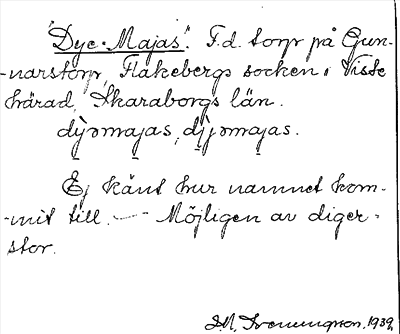 "Dye-Majas". F.d. torp på Gun-
-narstorp, Flakebergs socken i Viste
härad, Skaraborgs län.
dyjəmajas, djyəmajas.
Ej känt hur namnet kom-
-mit till. — Möjligen av diger =
stor.
1939